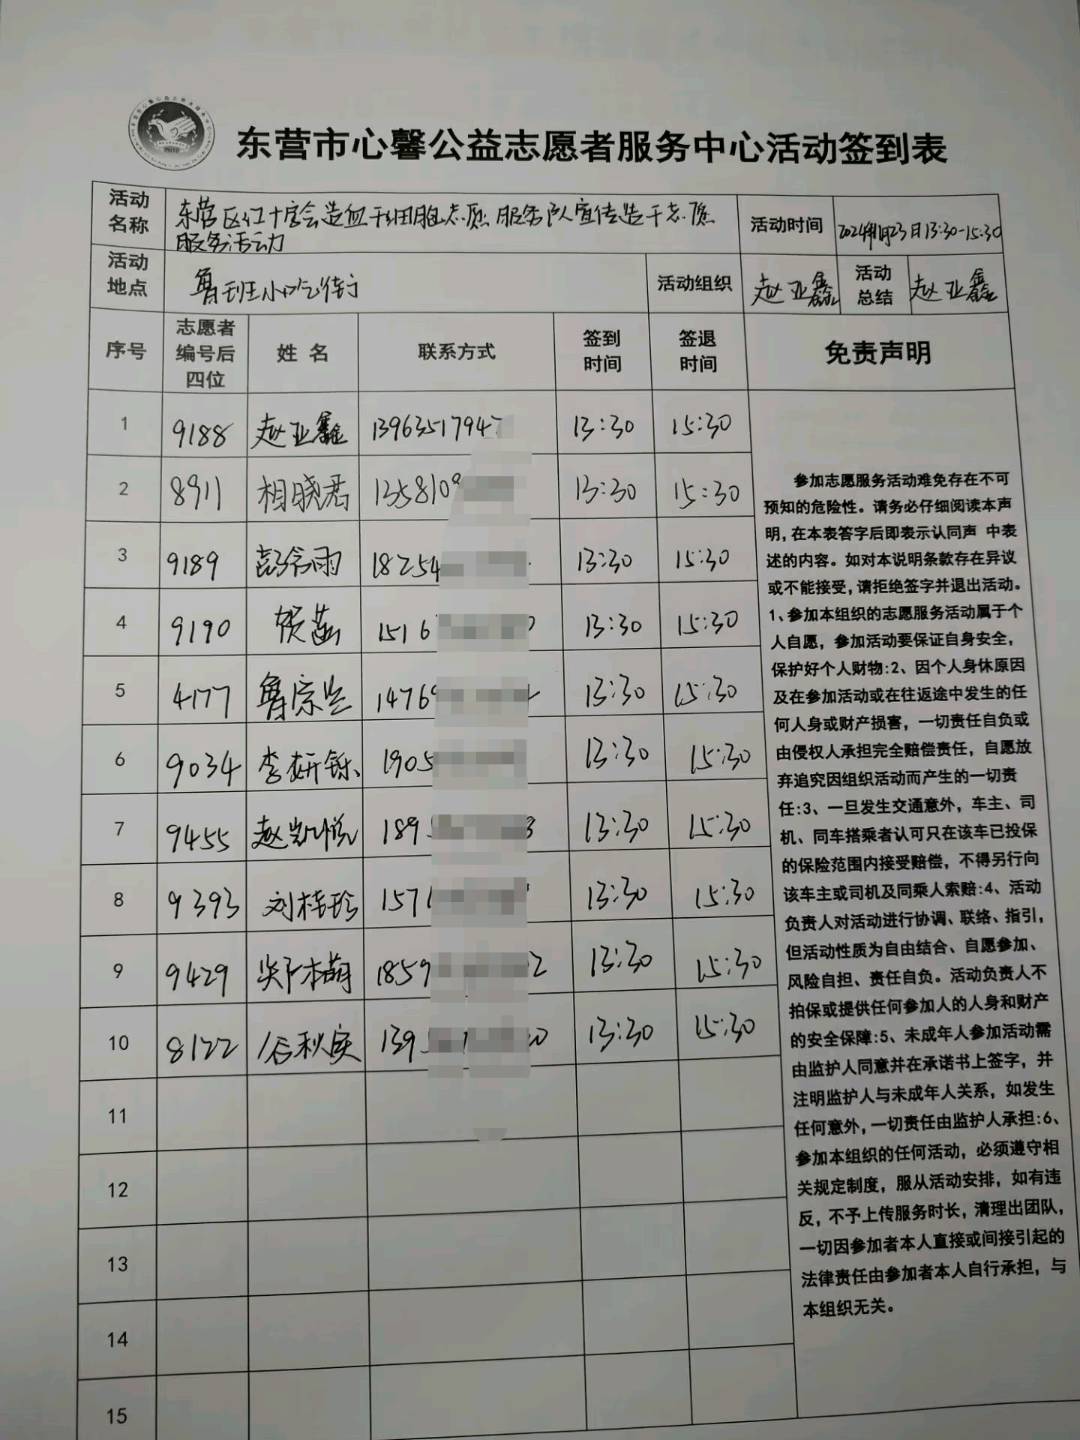 东营市心馨公益志愿者服务中心活动签到表
活动名称 东营区红十字会造血干细胞志愿服务队宣传造干志愿服务活动 活动时间 2024年11月23日13:30-15:30
活动地点 鲁班小吃街 活动组织 赵亚鑫 活动总结 赵亚鑫
序号 志愿者编号后四位 姓名 联系方式 签到时间 签退时间 免责声明
1 9188 赵亚鑫 1396351794 13:30 15:30
2 8911 相晓君 1358109 13:30 15:30
3 9189 彭令雨 18254 13:30 15:30
4 9190 贺菡 1516 13:30 15:30
5 4177 鲁宗兰 1476 13:30 15:30
6 9034 李妍铄 1905 13:30 15:30
7 9455 赵凯悦 189 3 13:30 15:30
8 9393 刘桂珍 157 13:30 15:30
9 9429 1859 2 13:30 15:30
10 8122 谷秋实 139 0 13:30 15:30
11
12
13
14
15
参加志愿服务活动难免存在不可
预知的危险性。请务必仔细阅读本声
明,在本表签字后即表示认同声 中表
述的内容。如对本说明条款存在异议
或不能接受,请拒绝签字并退出活动。
1、参加本组织的志愿服务活动属于个
人自愿，参加活动要保证自身安全，
保护好个人财物:2、因个人身休原因
及在参加活动或在往返途中发生的任
何人身或财产损害，一切责任自负或
由侵权人承担完全赔偿责任，自愿放
弃追究因组织活动而产生的一切责
任:3、一旦发生交通意外，车主、司
机、同车搭乘者认可只在该车已投保
的保险范围内接受赔偿，不得另行向
该车主或司机及同乘人索赔:4、活动
负责人对活动进行协调、联络、指引，
但活动性质为自由结合、自愿参加、
风险自担、责任自负。活动负责人不
拍保或提供任何参加人的人身和财产
的安全保障:5、未成年人参加活动需
由监护人同意并在承诺书上签字，并
注明监护人与未成年人关系，如发生
任何意外,一切责任由监护人承担:6、
参加本组织的任何活动，必须遵守相
关规定制度，服从活动安排，如有违
反，不予上传服务时长，清理出团队，
一切因参加者本人直接或间接引起的
法律责任由参加者本人自行承担，与
本组织无关。